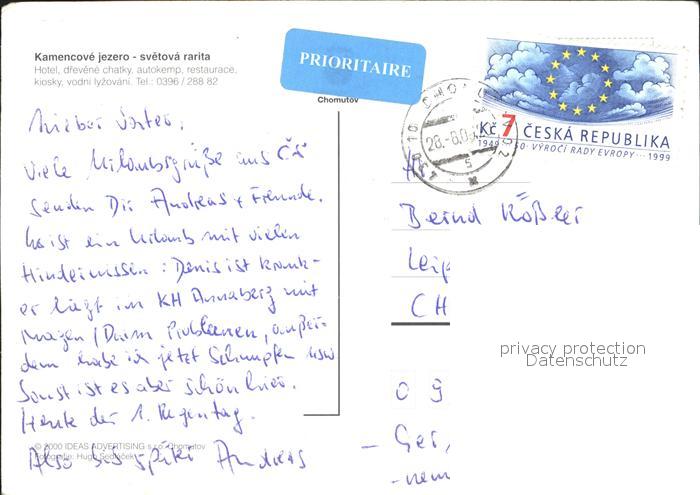 Kamencové jezero - světová rarita
Hotel, dřevěné chatky, autokemp, restaurace,
kiosky, vodní lyžování. Tel.: 0396 / 288 82
PRIORITAIRE
Chomutov
Kč 7 ČESKÁ REPUBLIKA
1949 50. VÝROČÍ RADY EVROPY 1999
Lieber Vater,
Viele Urlaubsgrüße aus
senden Dir Andreas + Freunde.
Es ist ein Urlaub mit vielen
Hindernissen: Denis ist krank-
er liegt im KH Annaberg mit
Magen / Darm Problemen, außer-
dem habe ich jetzt Schnupfen usw
Sonst ist es aber schön hier.
Heute der 1. Regentag.
Also bis später Andreas
© 2000 IDEAS ADVERTISING s.r.o. Chomutov
Fotografie: Hugo Sedláček
Bernd Rößler
Leip
CH
privacy protection
Datenschutz
0 9
- Ger,
- nem